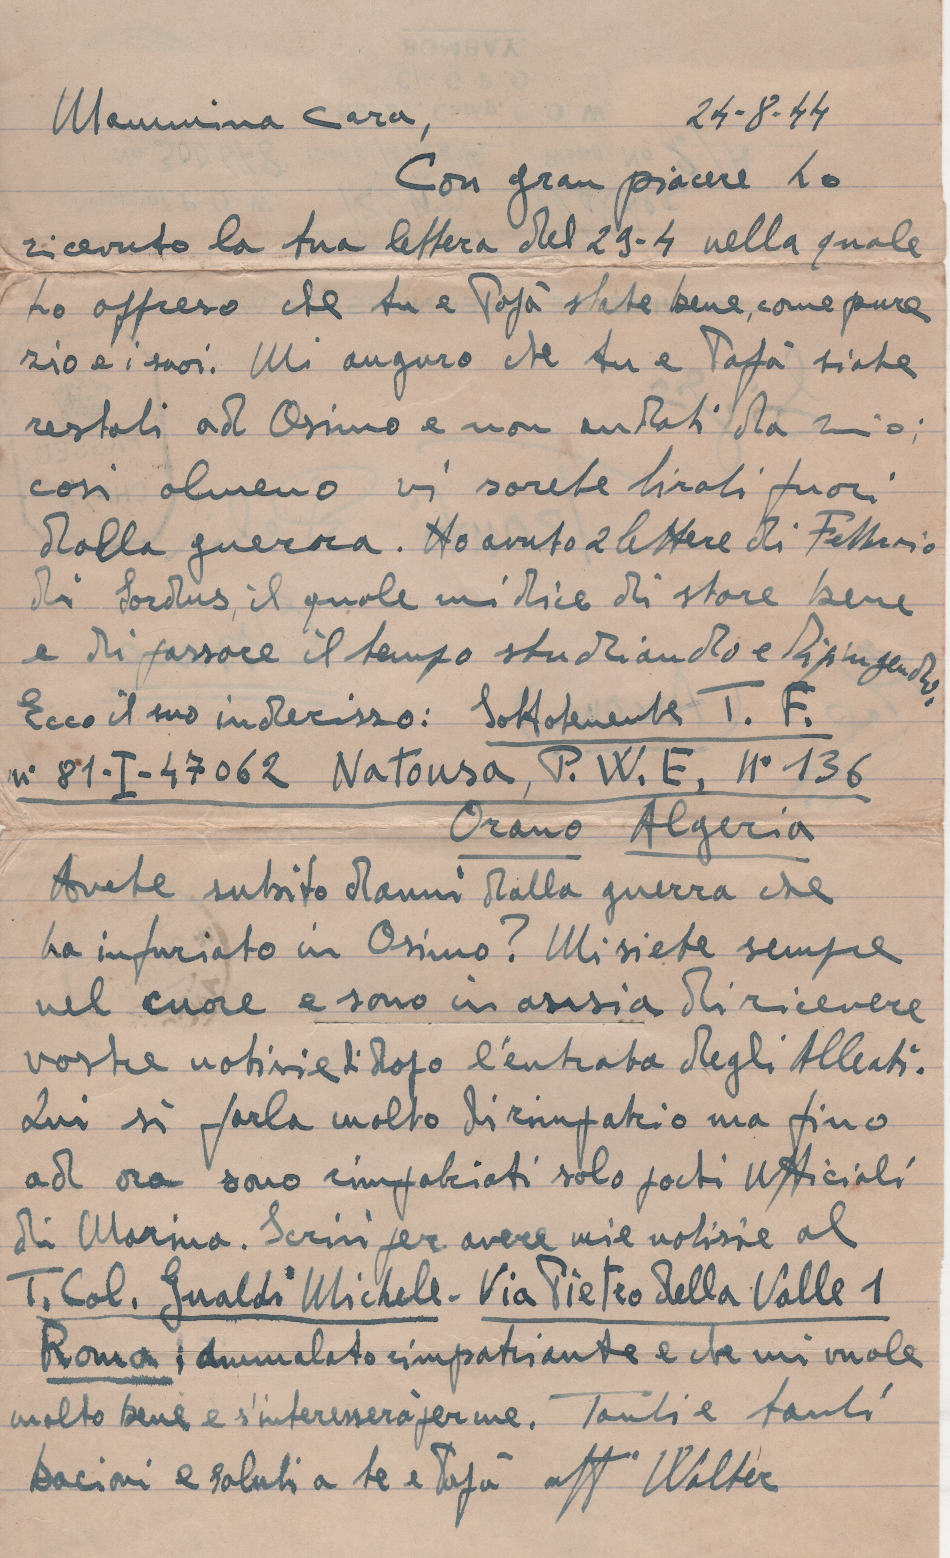 Mammina cara, 24-8-44
Con gran piacere ho
ricevuto la tua lettera del 29-4 nella quale
ho appreso che tu e Papà state bene, come pure
zio e i suoi. Mi auguro che tu e Papà siate
restati ad Osimo e non andati da zio;
così almeno vi sarete tirati fuori
dalla guerra. Ho avuto 2 lettere di Febbraio
di Lordus, il quale mi dice di stare bene
e di passare il tempo studiando e dipingendo.
Ecco il suo inderizzo: Sottotenente T. F.
n° 81-I-47062 Natousa, P. W. E, N° 136
Orano Algeria
Avete subito danni dalla guerra che
ha infuriato in Osimo? Mi siete sempre
nel cuore e sono in ansia di ricevere
vostre notizie dopo l'entrata degli Alleati.
Qui si parla molto di rimpatrio ma fino
ad ora sono rimpatriati solo pochi ufficiali
di Marina. Scrivi per avere mie notizie al
T. Col. Gualdi Michele - Via Pietro della Valle 1
Roma; ammalato rimpatriante e che mi vuole
molto bene e s'interesserà per me. Tanti e tanti
bacioni e saluti a te e Papà aff° Walter